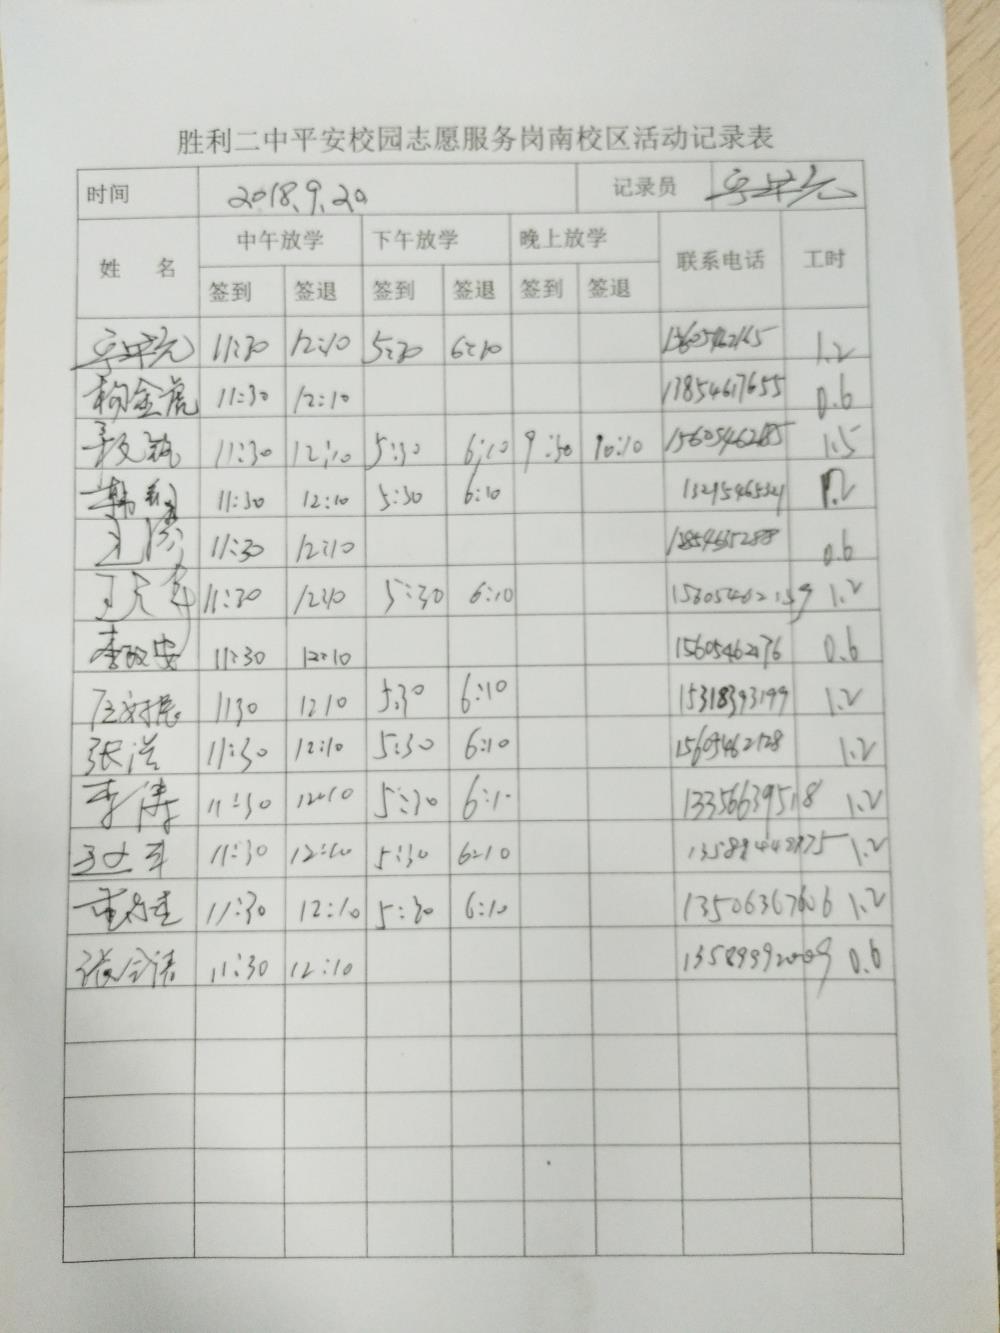 胜利二中平安校园志愿服务岗南校区活动记录表
时间 2018.9.20 记录员
姓 名 中午放学 下午放学 晚上放学 联系电话 工时
签到 签退 签到 签退 签到 签退
11:30 12:10 5:30 6:10 13605462165 1.2
杨金虎 11:30 12:10 13854617655 0.6
11:30 12:10 5:30 6:10 9:30 10:10 1.5
韩 11:30 12:10 5:30 6:10 13215465321 1.2
王 11:30 12:10 13854635288 0.6
王 11:30 12:10 5:30 6:10 1.2
李政安 11:30 12:10 15605462176 0.6
11:30 12:10 5:30 6:10 15318393199 1.2
张洪 11:30 12:10 5:30 6:10 15605462128 1.2
李涛 11:30 12:10 5:30 6:1 13356639518 1.2
11:30 12:10 5:30 6:10 1.2
11:30 12:10 5:30 6:10 13506367606 1.2
张 11:30 12:10 13589992009 0.6